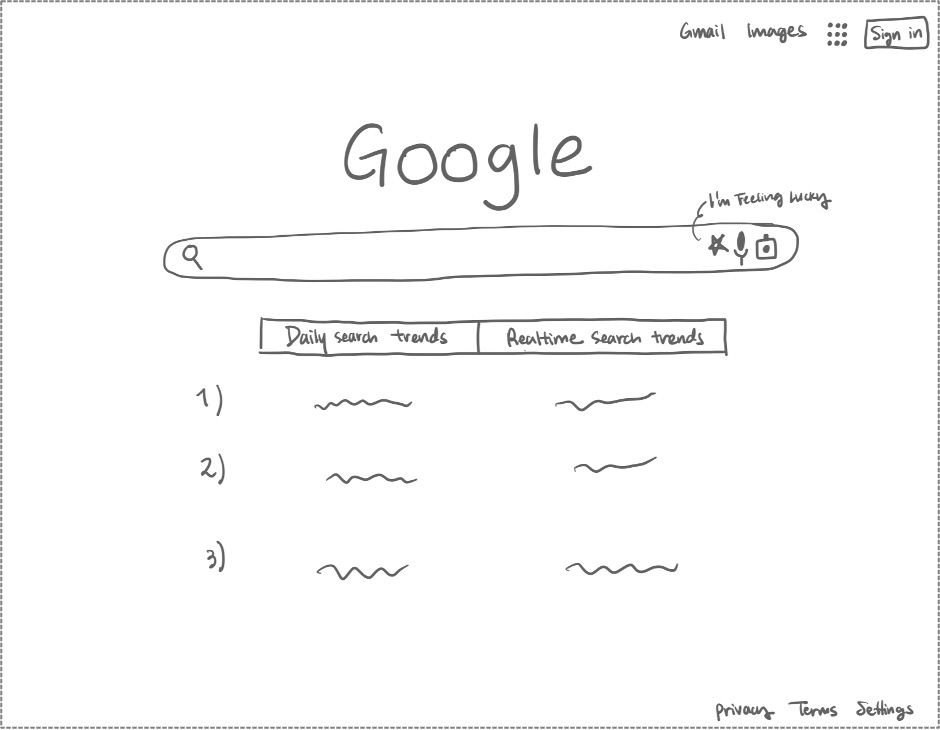 Gmail Images Sign in
Google
I'm Feeling Lucky
Daily search trends Realtime search trends
1)
2)
3)
Privacy Terms Settings